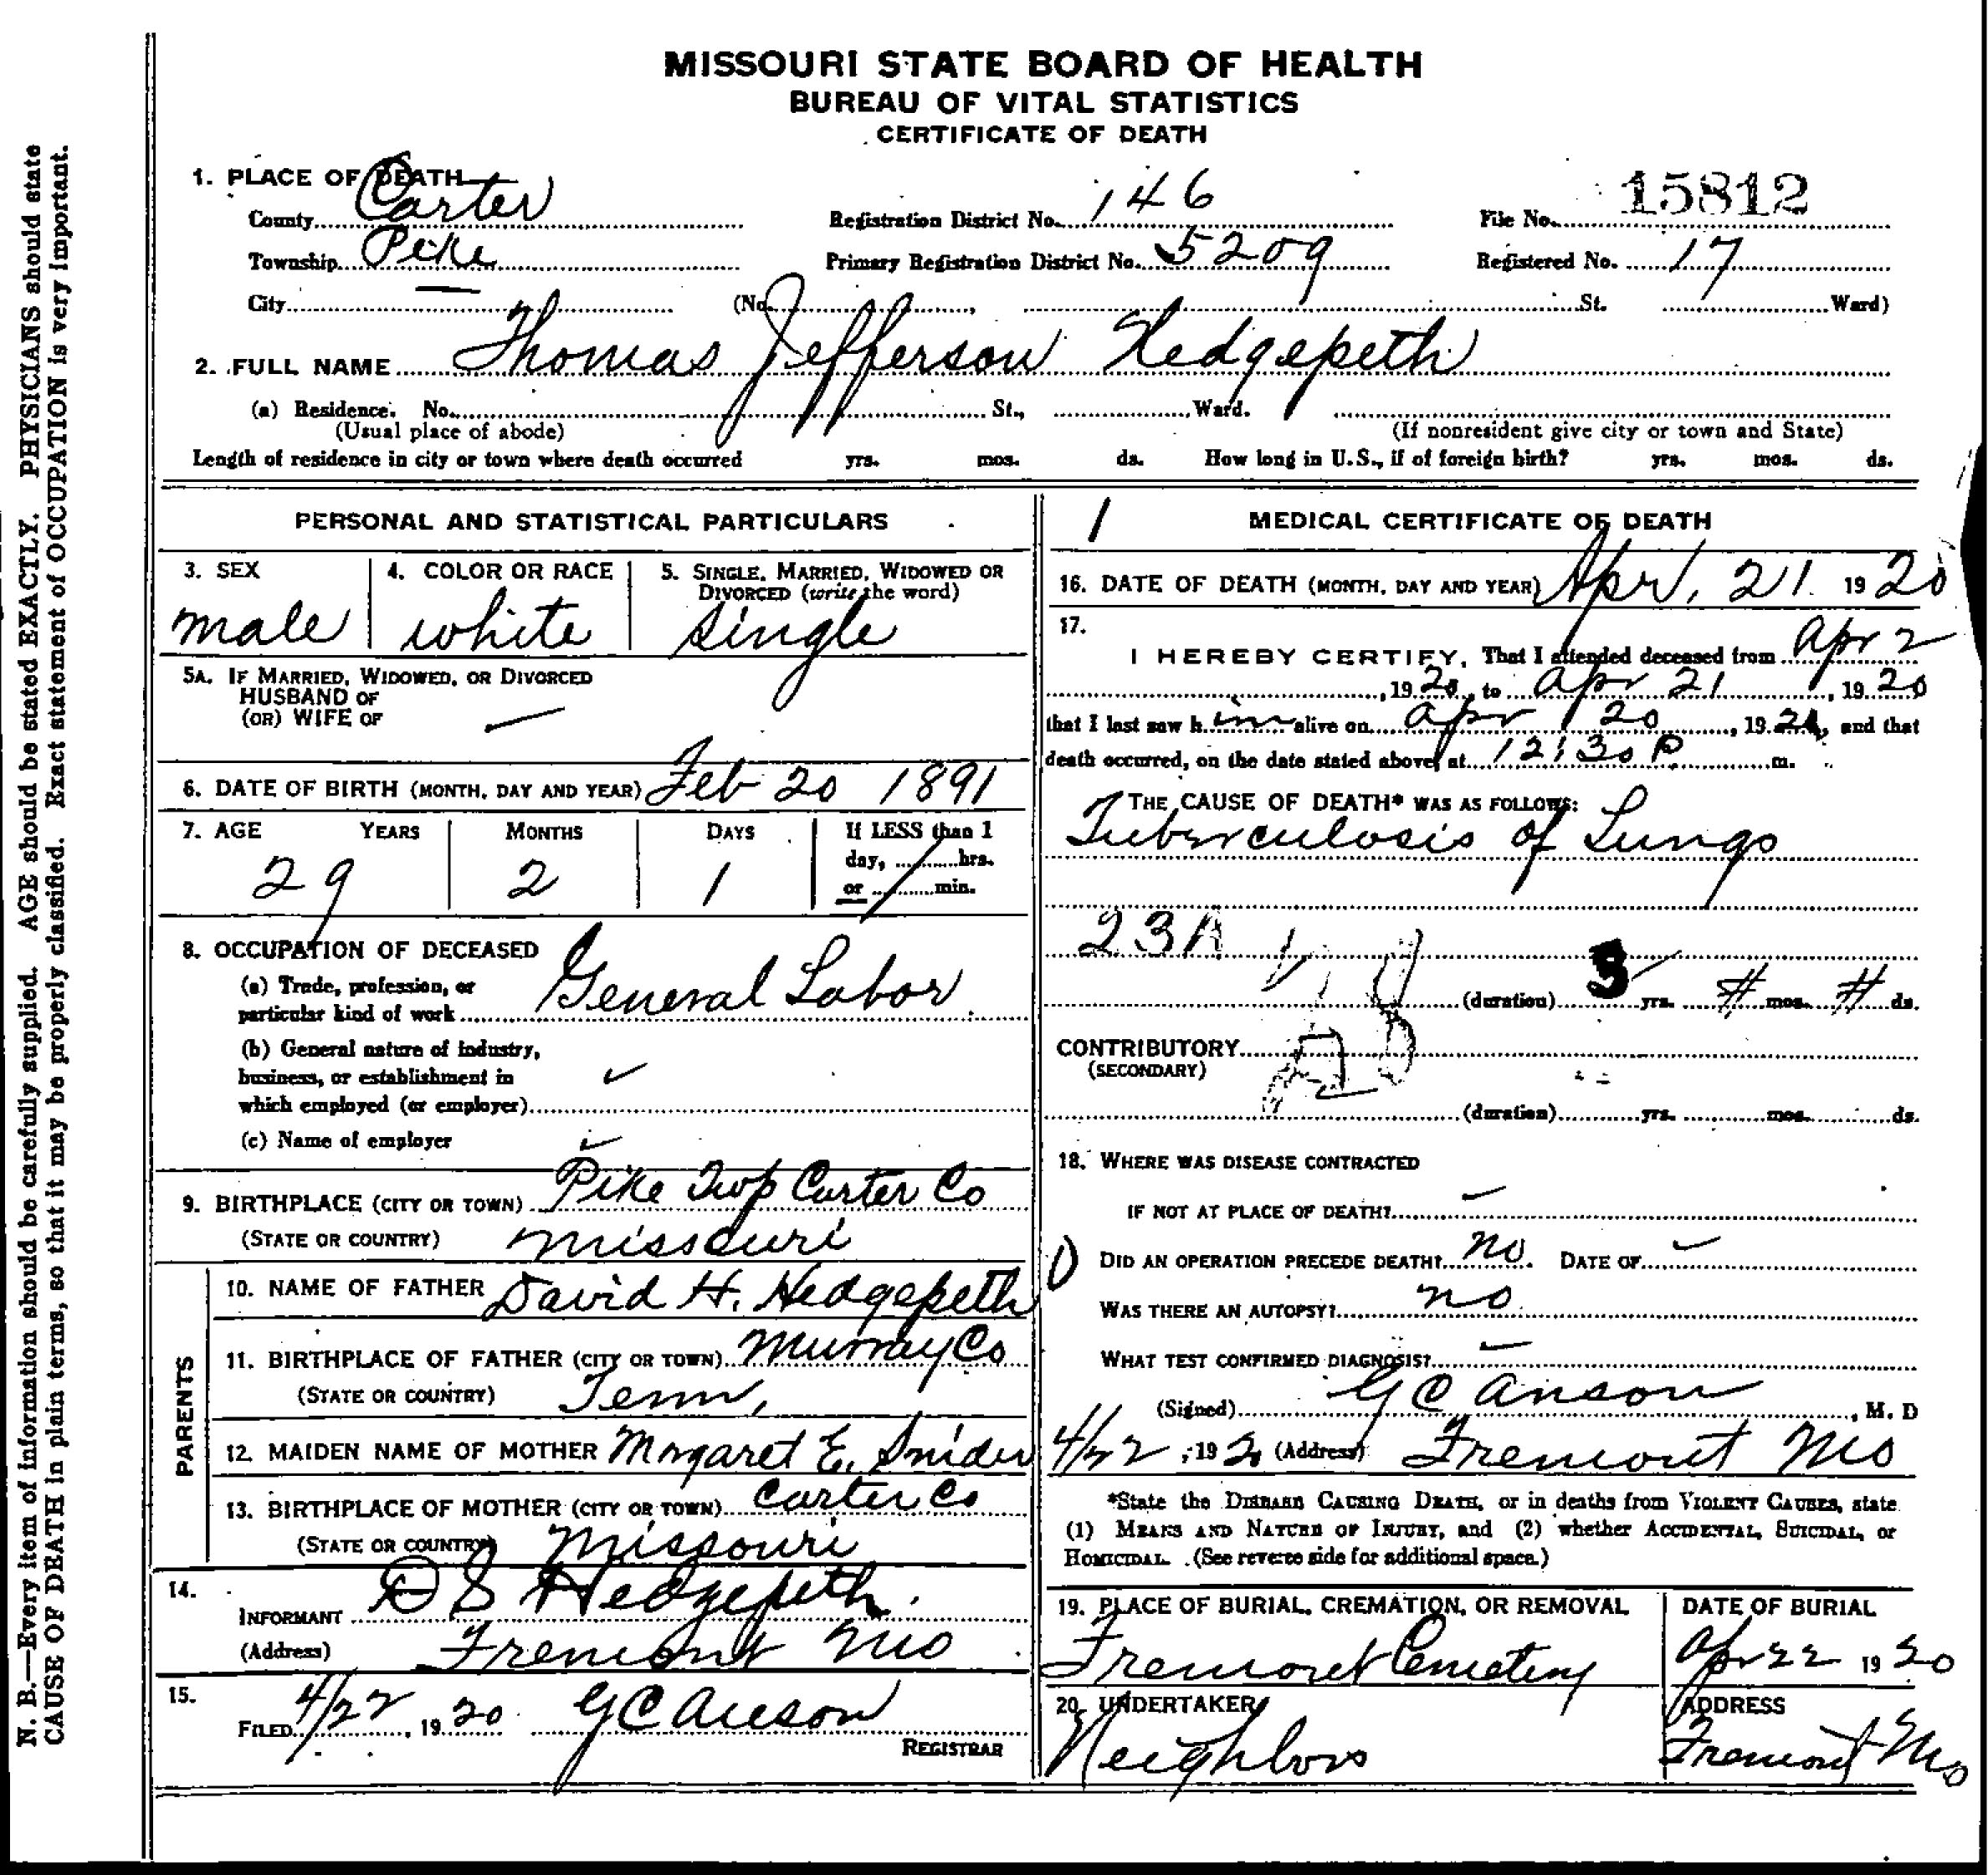 MISSOURI STATE BOARD OF HEALTH
BUREAU OF VITAL STATISTICS
CERTIFICATE OF DEATH
1. PLACE OF DEATH
County Carter Registration District No. 146 File No. 15812
Township Pike Primary Registration District No. 5209 Registered No. 17
City — (No. , St. Ward)
2. FULL NAME Thomas Jefferson Hedgepeth
(a) Residence. No. St., Ward.
(Usual place of abode) (If nonresident give city or town and State)
Length of residence in city or town where death occurred yrs. mos. ds. How long in U.S., if of foreign birth? yrs. mos. ds.
PERSONAL AND STATISTICAL PARTICULARS
3. SEX 4. COLOR OR RACE 5. SINGLE, MARRIED, WIDOWED OR
DIVORCED (write the word)
male white single
5A. IF MARRIED, WIDOWED, OR DIVORCED
HUSBAND OF
(OR) WIFE OF —
6. DATE OF BIRTH (MONTH, DAY AND YEAR) Feb 20 1891
7. AGE YEARS MONTHS DAYS If LESS than 1
day, hrs.
or min.
29 2 1
8. OCCUPATION OF DECEASED
(a) Trade, profession, or
particular kind of work General Labor
(b) General nature of industry,
business, or establishment in ✓
which employed (or employer)
(c) Name of employer ✓
9. BIRTHPLACE (CITY OR TOWN) Pike Twp Carter Co
(STATE OR COUNTRY) Missouri
PARENTS
10. NAME OF FATHER David H. Hedgepeth
11. BIRTHPLACE OF FATHER (CITY OR TOWN) Murray Co
(STATE OR COUNTRY) Tenn,
12. MAIDEN NAME OF MOTHER Margaret E. Snider
13. BIRTHPLACE OF MOTHER (CITY OR TOWN) Carter Co
(STATE OR COUNTRY) Missouri
14.
INFORMANT D S Hedgepeth
(Address) Fremont Mo
15.
FILED 4/22, 1920 G C Anson
REGISTRAR
1 MEDICAL CERTIFICATE OF DEATH
16. DATE OF DEATH (MONTH, DAY AND YEAR) Apr, 21. 1920
17.
I HEREBY CERTIFY, That I attended deceased from Apr 2
, 1920, to Apr 21, 1920
that I last saw him alive on Apr 20, 1920, and that
death occurred, on the date stated above, at 12:30 P m.
THE CAUSE OF DEATH* WAS AS FOLLOWS:
Tuberculosis of Lungs
23A
(duration) 3 yrs. # mos. # ds.
CONTRIBUTORY
(SECONDARY)
(duration) yrs. mos. ds.
18. WHERE WAS DISEASE CONTRACTED
IF NOT AT PLACE OF DEATH?
DID AN OPERATION PRECEDE DEATH? no. DATE OF
WAS THERE AN AUTOPSY? no
WHAT TEST CONFIRMED DIAGNOSIS?
(Signed) G C Anson, M. D
4/22, 192 (Address) Fremont Mo
*State the DISEASE CAUSING DEATH, or in deaths from VIOLENT CAUSES, state
(1) MEANS AND NATURE OF INJURY, and (2) whether ACCIDENTAL, SUICIDAL, or
HOMICIDAL. (See reverse side for additional space.)
19. PLACE OF BURIAL, CREMATION, OR REMOVAL DATE OF BURIAL
Fremont Cemetery Apr 22 1920
20. UNDERTAKER ADDRESS
Neighbors Fremont Mo
N. B.—Every item of information should be carefully supplied. AGE should be stated EXACTLY. PHYSICIANS should state
CAUSE OF DEATH in plain terms, so that it may be properly classified. Exact statement of OCCUPATION is very important.